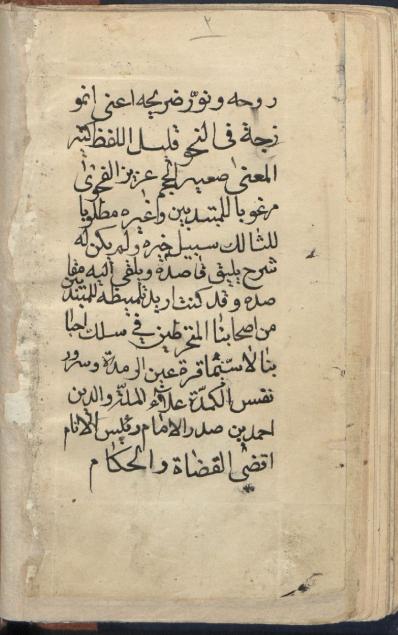 ٢
روحه ونوّر ضريحه اعنى انمو
زجة فى النحو قليل اللفظ كثير
المعنى صغير الحجم عزيز الفحوىٰ
مرغوبا للمبتديين وغيره مطلوبا
للسالك سبيل خيره ولم يكن له
شرح يليق فاصده ويلقى اليه مقا
صده وقد كنت اريد تلميظه للمبتدئين
من اصحابنا المنخرطين في سلك احبا
بنا لاسيّما قرة عين الرمدة وسرور
نفس الكمدة علاء الملة والدين
احمد بن صدر الامام ورئيس الانام
اقضى القضاة والحكام